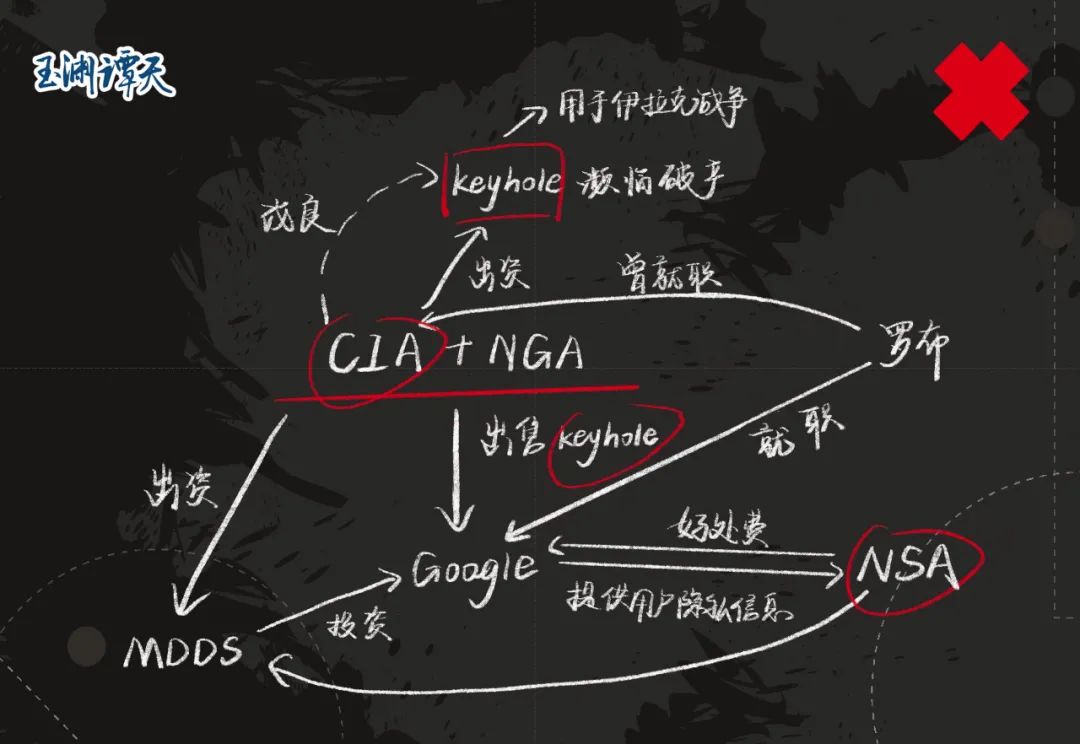 玉渊谭天
用于伊拉克战争
keyhole 濒临破产
改良
出资
曾就职
CIA + NGA
罗布
出售 keyhole
就职
出资
好处费
Google
NSA
提供用户隐私信息
投资
MDDS